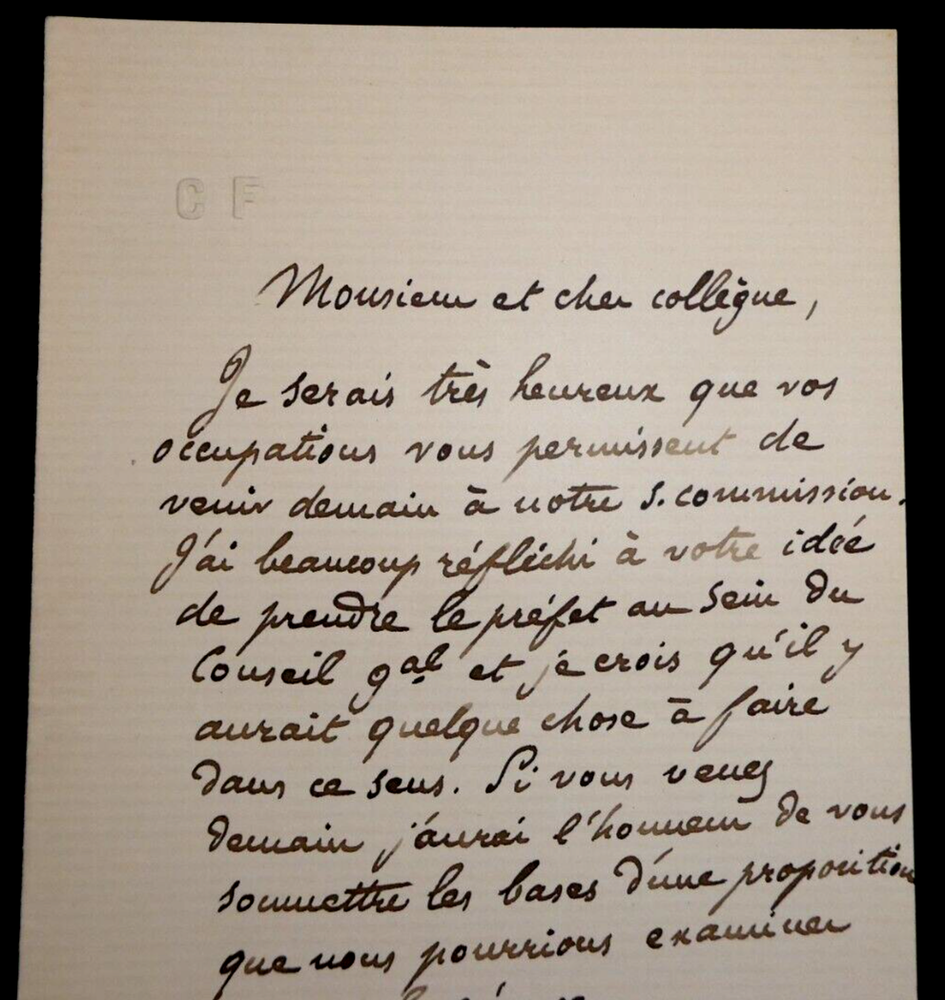 C F
Monsieur et cher collègue,
Je serais très heureux que vos
occupations vous permissent de
venir demain à notre s. commission.
J'ai beaucoup réfléchi à votre idée
de prendre le préfet au sein du
Conseil gal et je crois qu'il y
aurait quelque chose à faire
dans ce sens. Si vous venez
demain j'aurai l'honneur de vous
soumettre les bases d'une proposition
que nous pourrions examiner